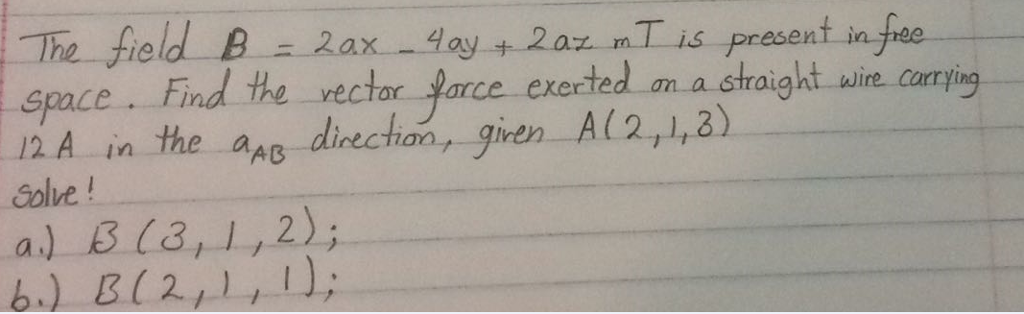 The field B = 2ax - 4ay + 2az mT is present in free
space. Find the vector force exerted on a straight wire carrying
12 A in the aAB direction, given A(2,1,3)
solve!
a.) B (3, 1, 2);
b.) B(2, 1, 1);